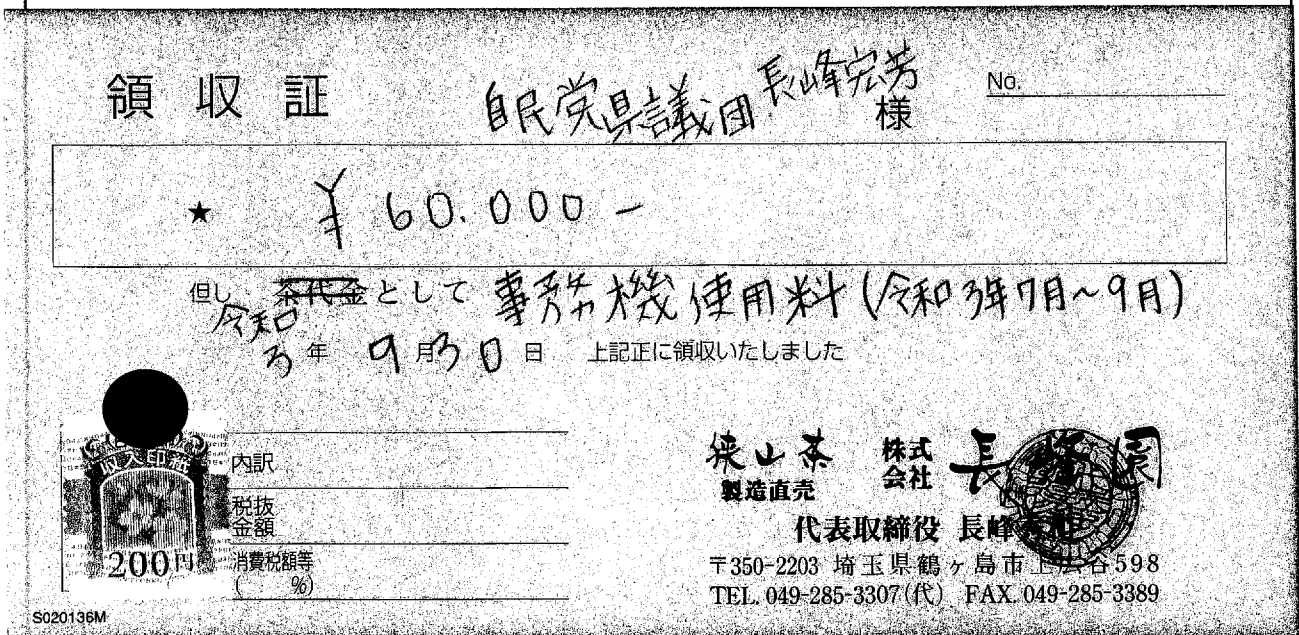 領収証 自民党県議団 長峰宏芳 様 No.
★ ¥60.000-
但し 茶代金として 事務機使用料(令和3年7月~9月)
令和3年9月30日 上記正に領収いたしました
収入印紙
200円
内訳
税抜金額
消費税額等
( %)
狭山茶 製造直売 株式会社 長峰園
代表取締役 長峰
〒350-2203 埼玉県鶴ヶ島市上広谷598
TEL. 049-285-3307(代) FAX. 049-285-3389
S020136M